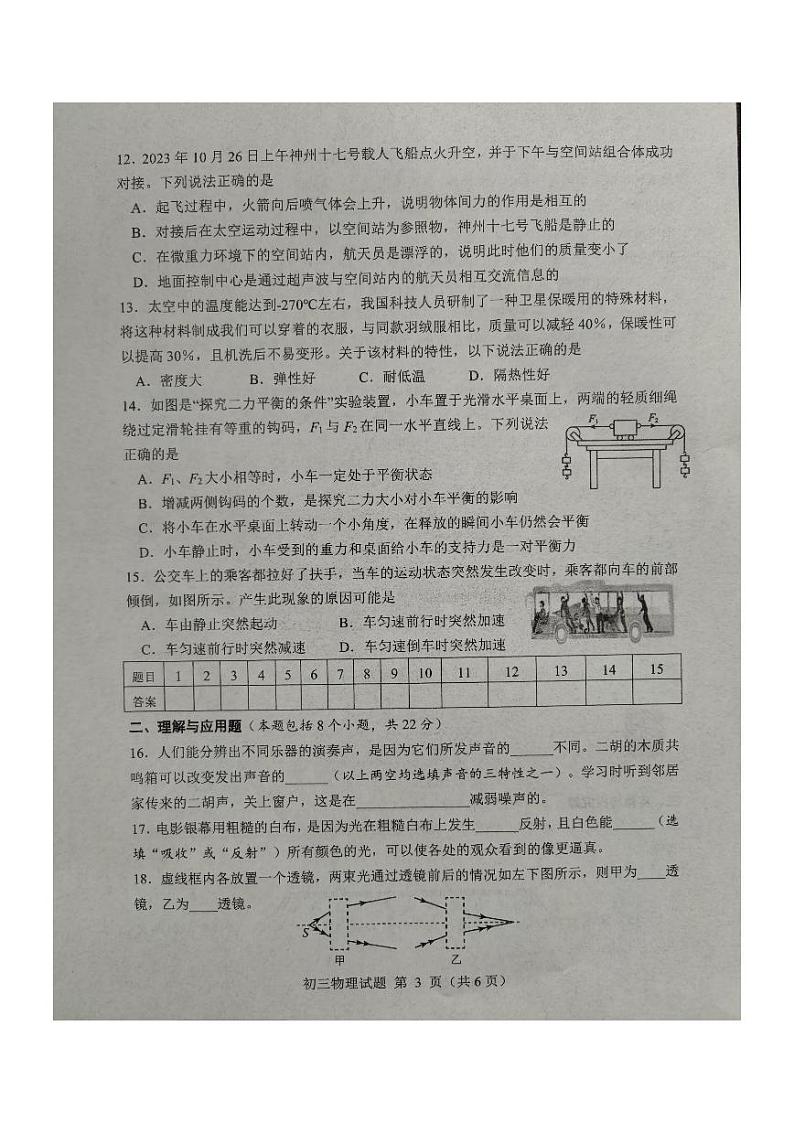 12．2023 年 10 月 26 日上午神州十七号载人飞船点火升空，并于下午与空间站组合体成功
对接。下列说法正确的是
A．起飞过程中，火箭向后喷气体会上升，说明物体间力的作用是相互的
B．对接后在太空运动过程中，以空间站为参照物，神州十七号飞船是静止的
C．在微重力环境下的空间站内，航天员是漂浮的，说明此时他们的质量变小了
D．地面控制中心是通过超声波与空间站内的航天员相互交流信息的
13．太空中的温度能达到-270℃左右，我国科技人员研制了一种卫星保暖用的特殊材料，
将这种材料制成我们可以穿着的衣服，与同款羽绒服相比，质量可以减轻 40%，保暖性可
以提高 30%，且机洗后不易变形。关于该材料的特性，以下说法正确的是
A．密度大 B．弹性好 C．耐低温 D．隔热性好
14．如图是“探究二力平衡的条件”实验装置，小车置于光滑水平桌面上，两端的轻质细绳
绕过定滑轮挂有等重的钩码，F1 与 F2 在同一水平直线上。下列说法
正确的是
F1 F2
A．F1、F2 大小相等时，小车一定处于平衡状态
B．增减两侧钩码的个数，是探究二力大小对小车平衡的影响
C．将小车在水平桌面上转动一个小角度，在释放的瞬间小车仍然会平衡
D．小车静止时，小车受到的重力和桌面给小车的支持力是一对平衡力
15．公交车上的乘客都拉好了扶手，当车的运动状态突然发生改变时，乘客都向车的前部
倾倒，如图所示。产生此现象的原因可能是
A．车由静止突然起动 B．车匀速前行时突然加速
C．车匀速前行时突然减速 D．车匀速倒车时突然加速
题目 1 2 3 4 5 6 7 8 9 10 11 12 13 14 15
答案
二、理解与应用题（本题包括 8 个小题，共 22 分）
16．人们能分辨出不同乐器的演奏声，是因为它们所发声音的______不同。二胡的木质共
鸣箱可以改变发出声音的______（以上两空均选填声音的三特性之一）。学习时听到邻居
家传来的二胡声，关上窗户，这是在________________减弱噪声的。
17．电影银幕用粗糙的白布，是因为光在粗糙白布上发生______反射，且白色能______（选
填“吸收”或“反射”）所有颜色的光，可以使各处的观众看到的像更逼真。
18．虚线框内各放置一个透镜，两束光通过透镜前后的情况如左下图所示，则甲为____透
镜，乙为____透镜。
S
甲 乙
初三物理试题 第 3 页（共 6 页）